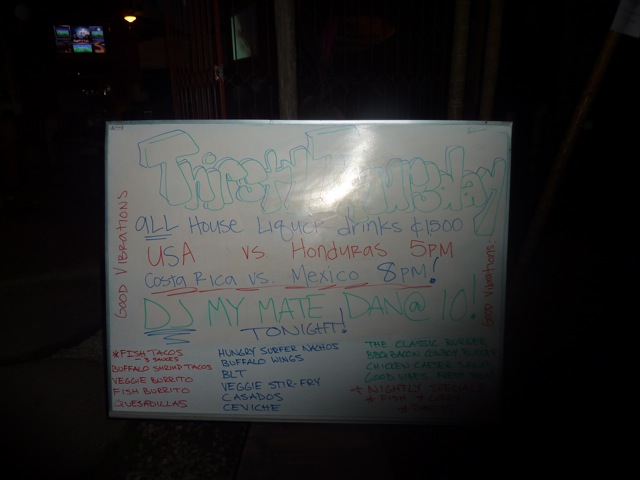 Thirsty Thursday
ALL House Liquor drinks ₡1500
USA vs. Honduras 5PM
Costa Rica vs. Mexico 8PM!
DJ MY MATE DAN @ 10!
TONIGHT!
GOOD VIBRATIONS
Good Vibrations!
*FISH TACOS
- 3 SAUCES
BUFFALO SHRIMP TACOS
VEGGIE BURRITO
FISH BURRITO
QUESADILLAS
HUNGRY SURFER NACHOS
BUFFALO WINGS
BLT
VEGGIE STIR-FRY
CASADOS
CEVICHE
THE CLASSIC BURGER
BBQ BACON COWBOY BURGER
CHICKEN CAESER SALAD
GOOD VIBES
* NIGHTLY SPECIALS
* FISH *